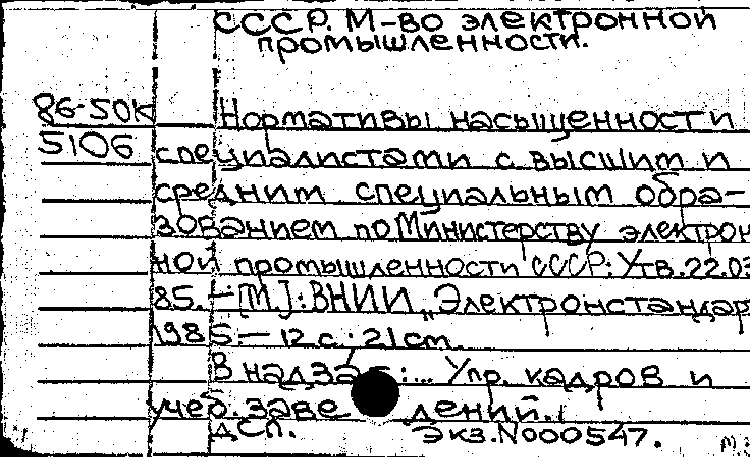 СССР. М-во электронной
промышленности.
86-50К
5106
Нормативы насыщенности
специалистами с высшим и
средним специальным обра-
зованием по Министерству электрон
ной промышленности СССР: Утв. 22.03
85. – [М.]: ВНИИ „Электронстандар
1985. – 12 с.; 21 см.
В надзаг.: ... Упр. кадров и
учеб. заведений.
ДСП. Экз. N000547.